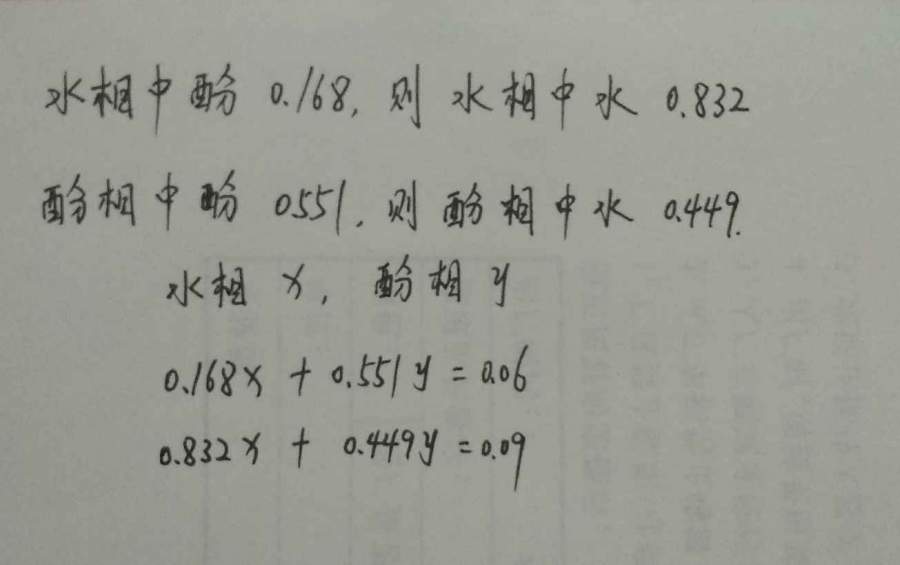 水相中酚 0.168, 则 水相中水 0.832
酚相中酚 0.551, 则 酚相中水 0.449.
水相 x, 酚相 y
0.168x + 0.551y = 0.06
0.832x + 0.449y = 0.09